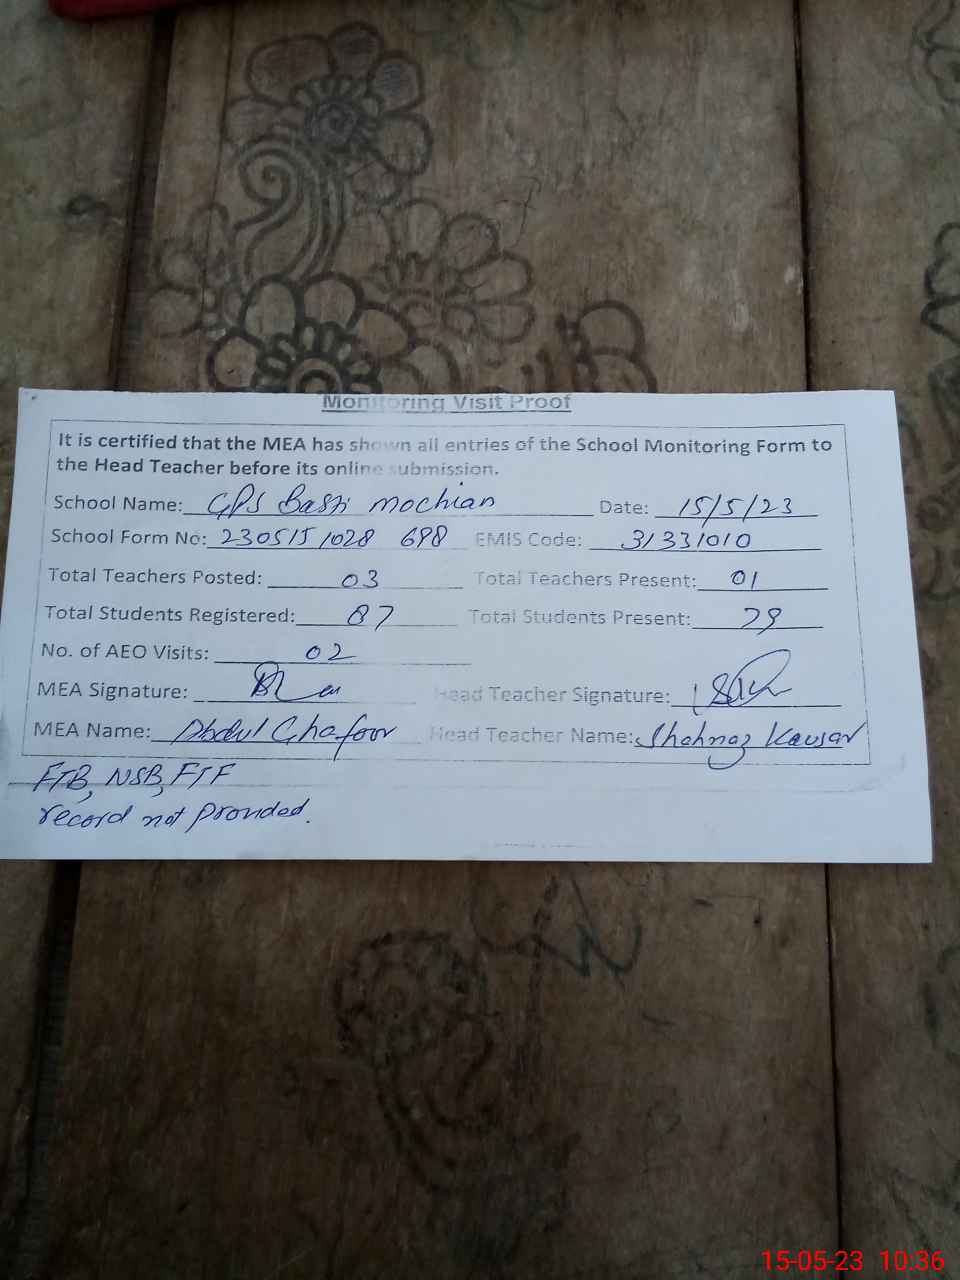 Monitoring Visit Proof
It is certified that the MEA has shown all entries of the School Monitoring Form to
the Head Teacher before its online submission.
School Name: GPS Basti mochian Date: 15/5/23
School Form No: 230515 1028 698 EMIS Code: 31331010
Total Teachers Posted: 03 Total Teachers Present: 01
Total Students Registered: 87 Total Students Present: 79
No. of AEO Visits: 02
MEA Signature: Head Teacher Signature:
MEA Name: Abdul Ghafoor Head Teacher Name: Shahnaz Kausar
FTB, NSB, FTF
record not provided.
15-05-23 10:36